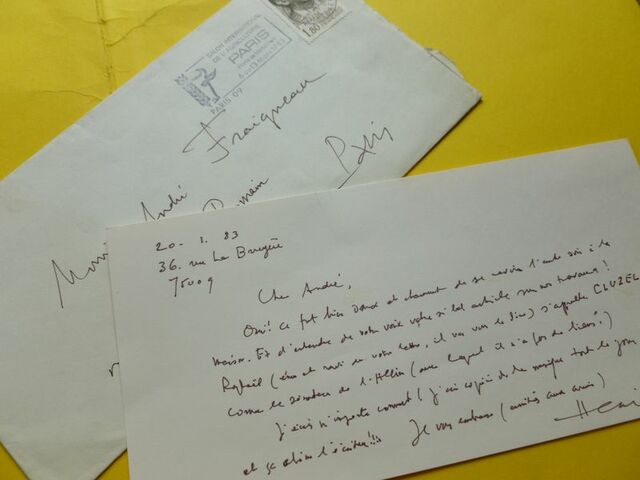 SALON INTERNATIONAL
DE L'AGRICULTURE
PARIS
PARIS 09
1,80
André Fraigneau
Paris
20. 1. 83
36. rue La Bruyère
75009
Cher André,
Oui! ce fut bien doux et charmant de se revoir l'autre soir à la
maison. Et d'entendre de votre voix votre si bel article sur nos travaux!
Raphaël (ému et ravi de votre lettre, il va vous le dire) s'appelle CLUZEL
comme le sénateur de l'Allier (avec lequel il n'a pas de liens!)
J'écris n'importe comment (j'ai copié de la musique tout le jour
et ça abîme l'écriture!!) Je vous embrasse (amitiés aux amis)
Henri